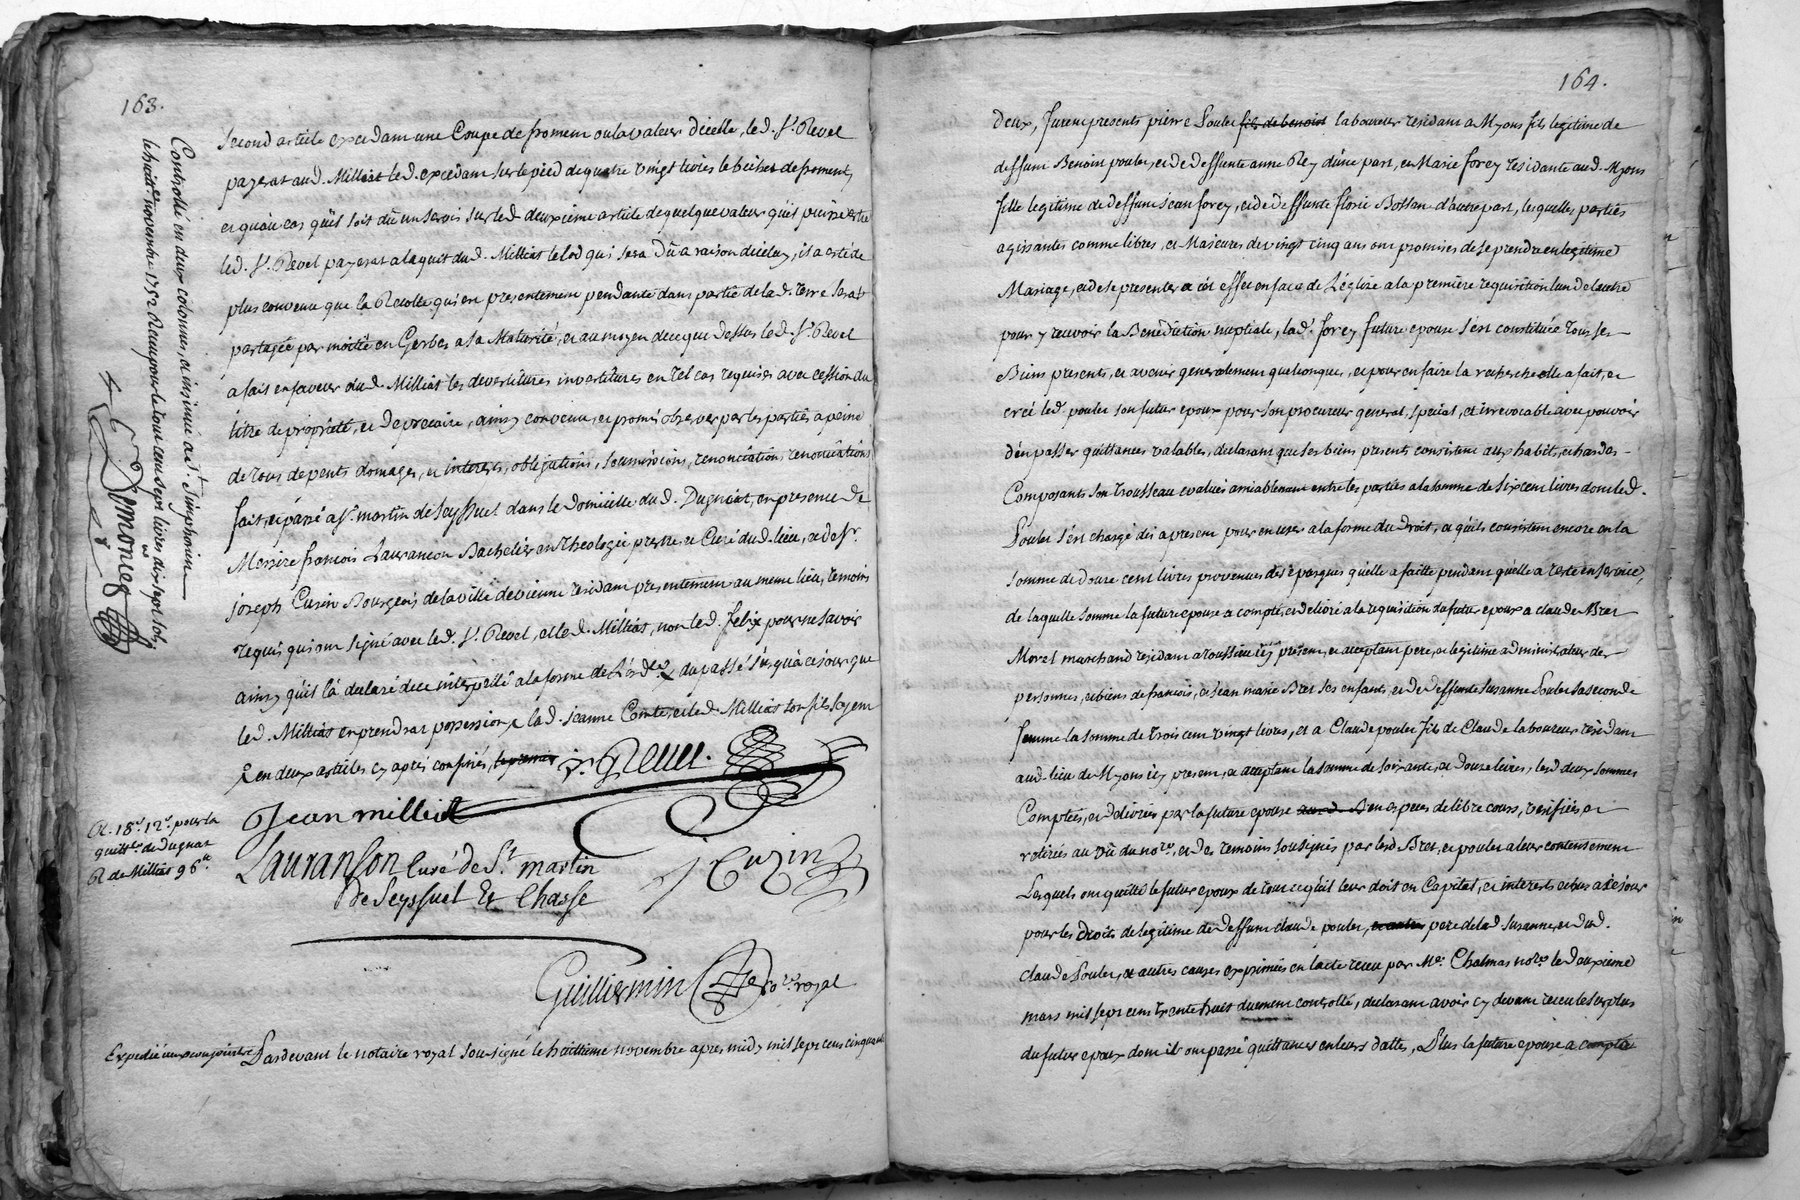 163.
second article excedant une Coupe de froment ou la valeur d'icelle, led. Sr. Revel
payerat aud. Milliat led. excedant sur le pied de quatre vingt livres le bichet de froment,
et qu'au cas qu'il soit dû un servis sur led. deuxieme article de quelque valeur qu'il puisse etre
led. Sr. Revel payerat a l'aquit dud. Milliat le lod qui sera dû a raison d'icelluy, il a esté de
plus convenu que la Recolte qui est presentement pendante dans partie de lad. terre serat
partagée par moitié en Gerbes a sa Maturité, et au moyen de ce que dessus led. Sr. Revel
a fait en faveur dud. Milliat les devestitures investitures en tel cas requises avec cession du
titre de propriété, et de precaire, ainsy convenu, et promis observer par les parties a peine
de tous depents domages, et interets, obligations, soumissions, renonciations renonciations
fait, et passé a St. martin de Seyssuel dans le domicille dud. Dugnat, en presence de
Messire françois Lauranson Bachelier en Theologie prestre, et Curé dud. lieu, et de Sr.
joseph Cuzin Bourgeois de la ville de vienne residant presentement au meme lieu, temoins
requis qui ont signé avec led. Sr. Revel, et led. Milliat, non led. felix pour ne savoir
ainsy qu'il l'a declaré de ce interpellé a la forme de l'ordce. x du passé jusqu'a ce jour que
led. Milliat en prendrat possession x lad. jeanne Comte, et led. Milliat son fils soyent
x en deux articles cy apres confinés,
J. Revel.
Jean milliat
Lauranson Curé de St. martin
De Seyssuel Et Chasse
J Cuzin
Guilliermin nore. royal
Controllé en deux colonnes, et insinué a St. Simphorien
le huite. novembre 1752 Reçu pour le tout cent sept livres dix sept sols
R. 18s. 12d. pour la
quittce. de Dugnat
R de Milliat 96tt.
Expedié aux conjoints
Pardevant le notaire royal sousigné le huittieme novembre apres midy mil sept cent cinquante
164.
deux, furent presents pierre Poulet fils de benoist laboureur residant a Myons fils legitime de
deffunt Benoist poulet, et de deffunte anne Rey d'une part, et Marie forey residante aud. Myons
fille legitime de deffunt jean forey, et de deffunte florie Bossan d'autre part, lesquelles parties
agissantes comme libres, et Majeures de vingt cinq ans ont promises de se prendre en legitime
Mariage, et de se presenter a cet effet en face de L'église a la premiere requisition l'un de l'autre
pour y recevoir la Benediction nuptiale, lad. forey future epouse s'est constituée tous ses
Biens presents, et avenir generalement quelconques, et pour en faire la recherche elle a fait, et
créé led. poulet son futur epoux pour son procureur general, special, et irrevocable avec pouvoir
d'en passer quittances valables, declarant que ses biens presents consistent aux habits, et hardes
Composants son trousseau evalués amiablement entre les parties a la somme de six cent livres dont led.
Poulet s'est chargé dés apresent pour en user a la forme du droit, et qu'ils consistent encore en la
somme de douze cent livres provenues des epargnes qu'elle a faitte pendant qu'elle a resté en service,
de laquelle somme la future epouse a compté, et delivré a la requisition du futur epoux a claude Bret
Morel marchand residant a toussieu icy present, et acceptant pere, et legitime administrateur des
personnes, et biens de françois, et jean marie Bret ses enfants, et de deffunte Suzanne Poulet sa seconde
femme la somme de trois cent vingt livres, et a Claude poulet fils de Claude laboureur residant
aud. lieu de Myons icy present, et acceptant la somme de soixante, et douze livres, lesd. deux sommes
Comptées, et delivrées par la future epouse en especes de libre cours, verifiées et
retirées au vû du nore. et des temoins sousignés par lesd. Bret, et poulet a leur contentement
Lesquels ont quitté le futur epoux de tout ce qu'il leur doit en Capital, et interests echus a ce jour
pour les droits de legitime de deffunt claude poulet, pere de lad. suzanne, et dud.
claude Poulet, et autres causes exprimées en l'acte reçu par Me. Chalmas nore. le deuxieme
mars mil sept cent trente huit duement controllé, declarant avoir cy devant reçu le surplus
du futur epoux dont ils ont passé quittances en leurs dattes, Plus la future epouse a compté